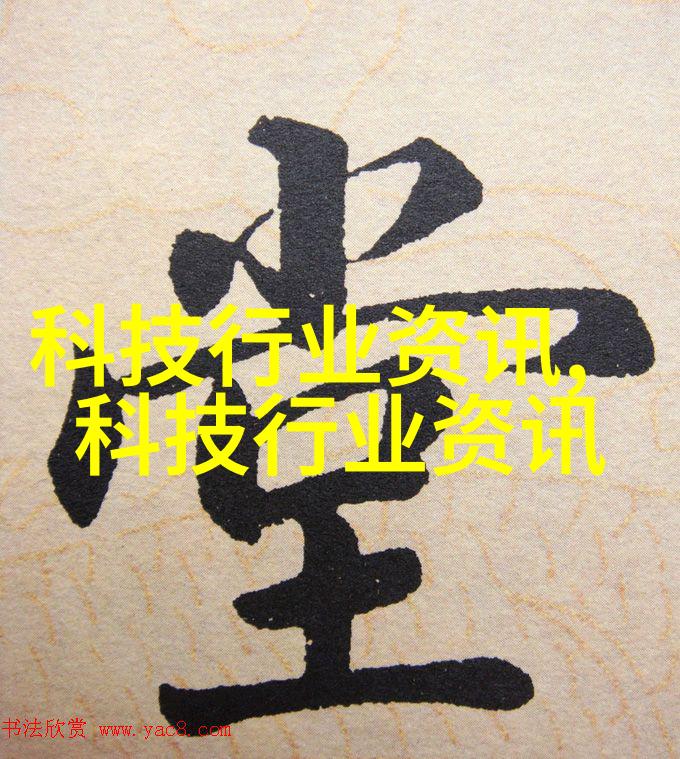 堂
科技行业资讯,
科技行业资讯
书法欣赏 www.yac8.com